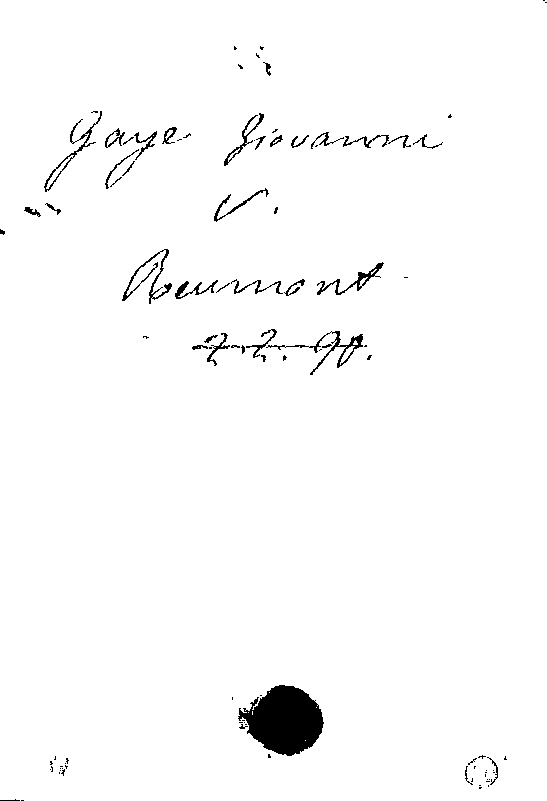 Gaye Giovanni
v.
Reumont
2.2.90.